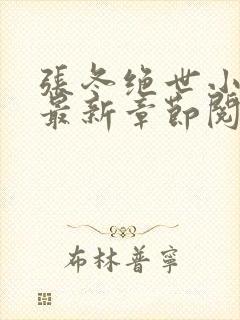 張冬绝世小
最新章節閱
布林普寧